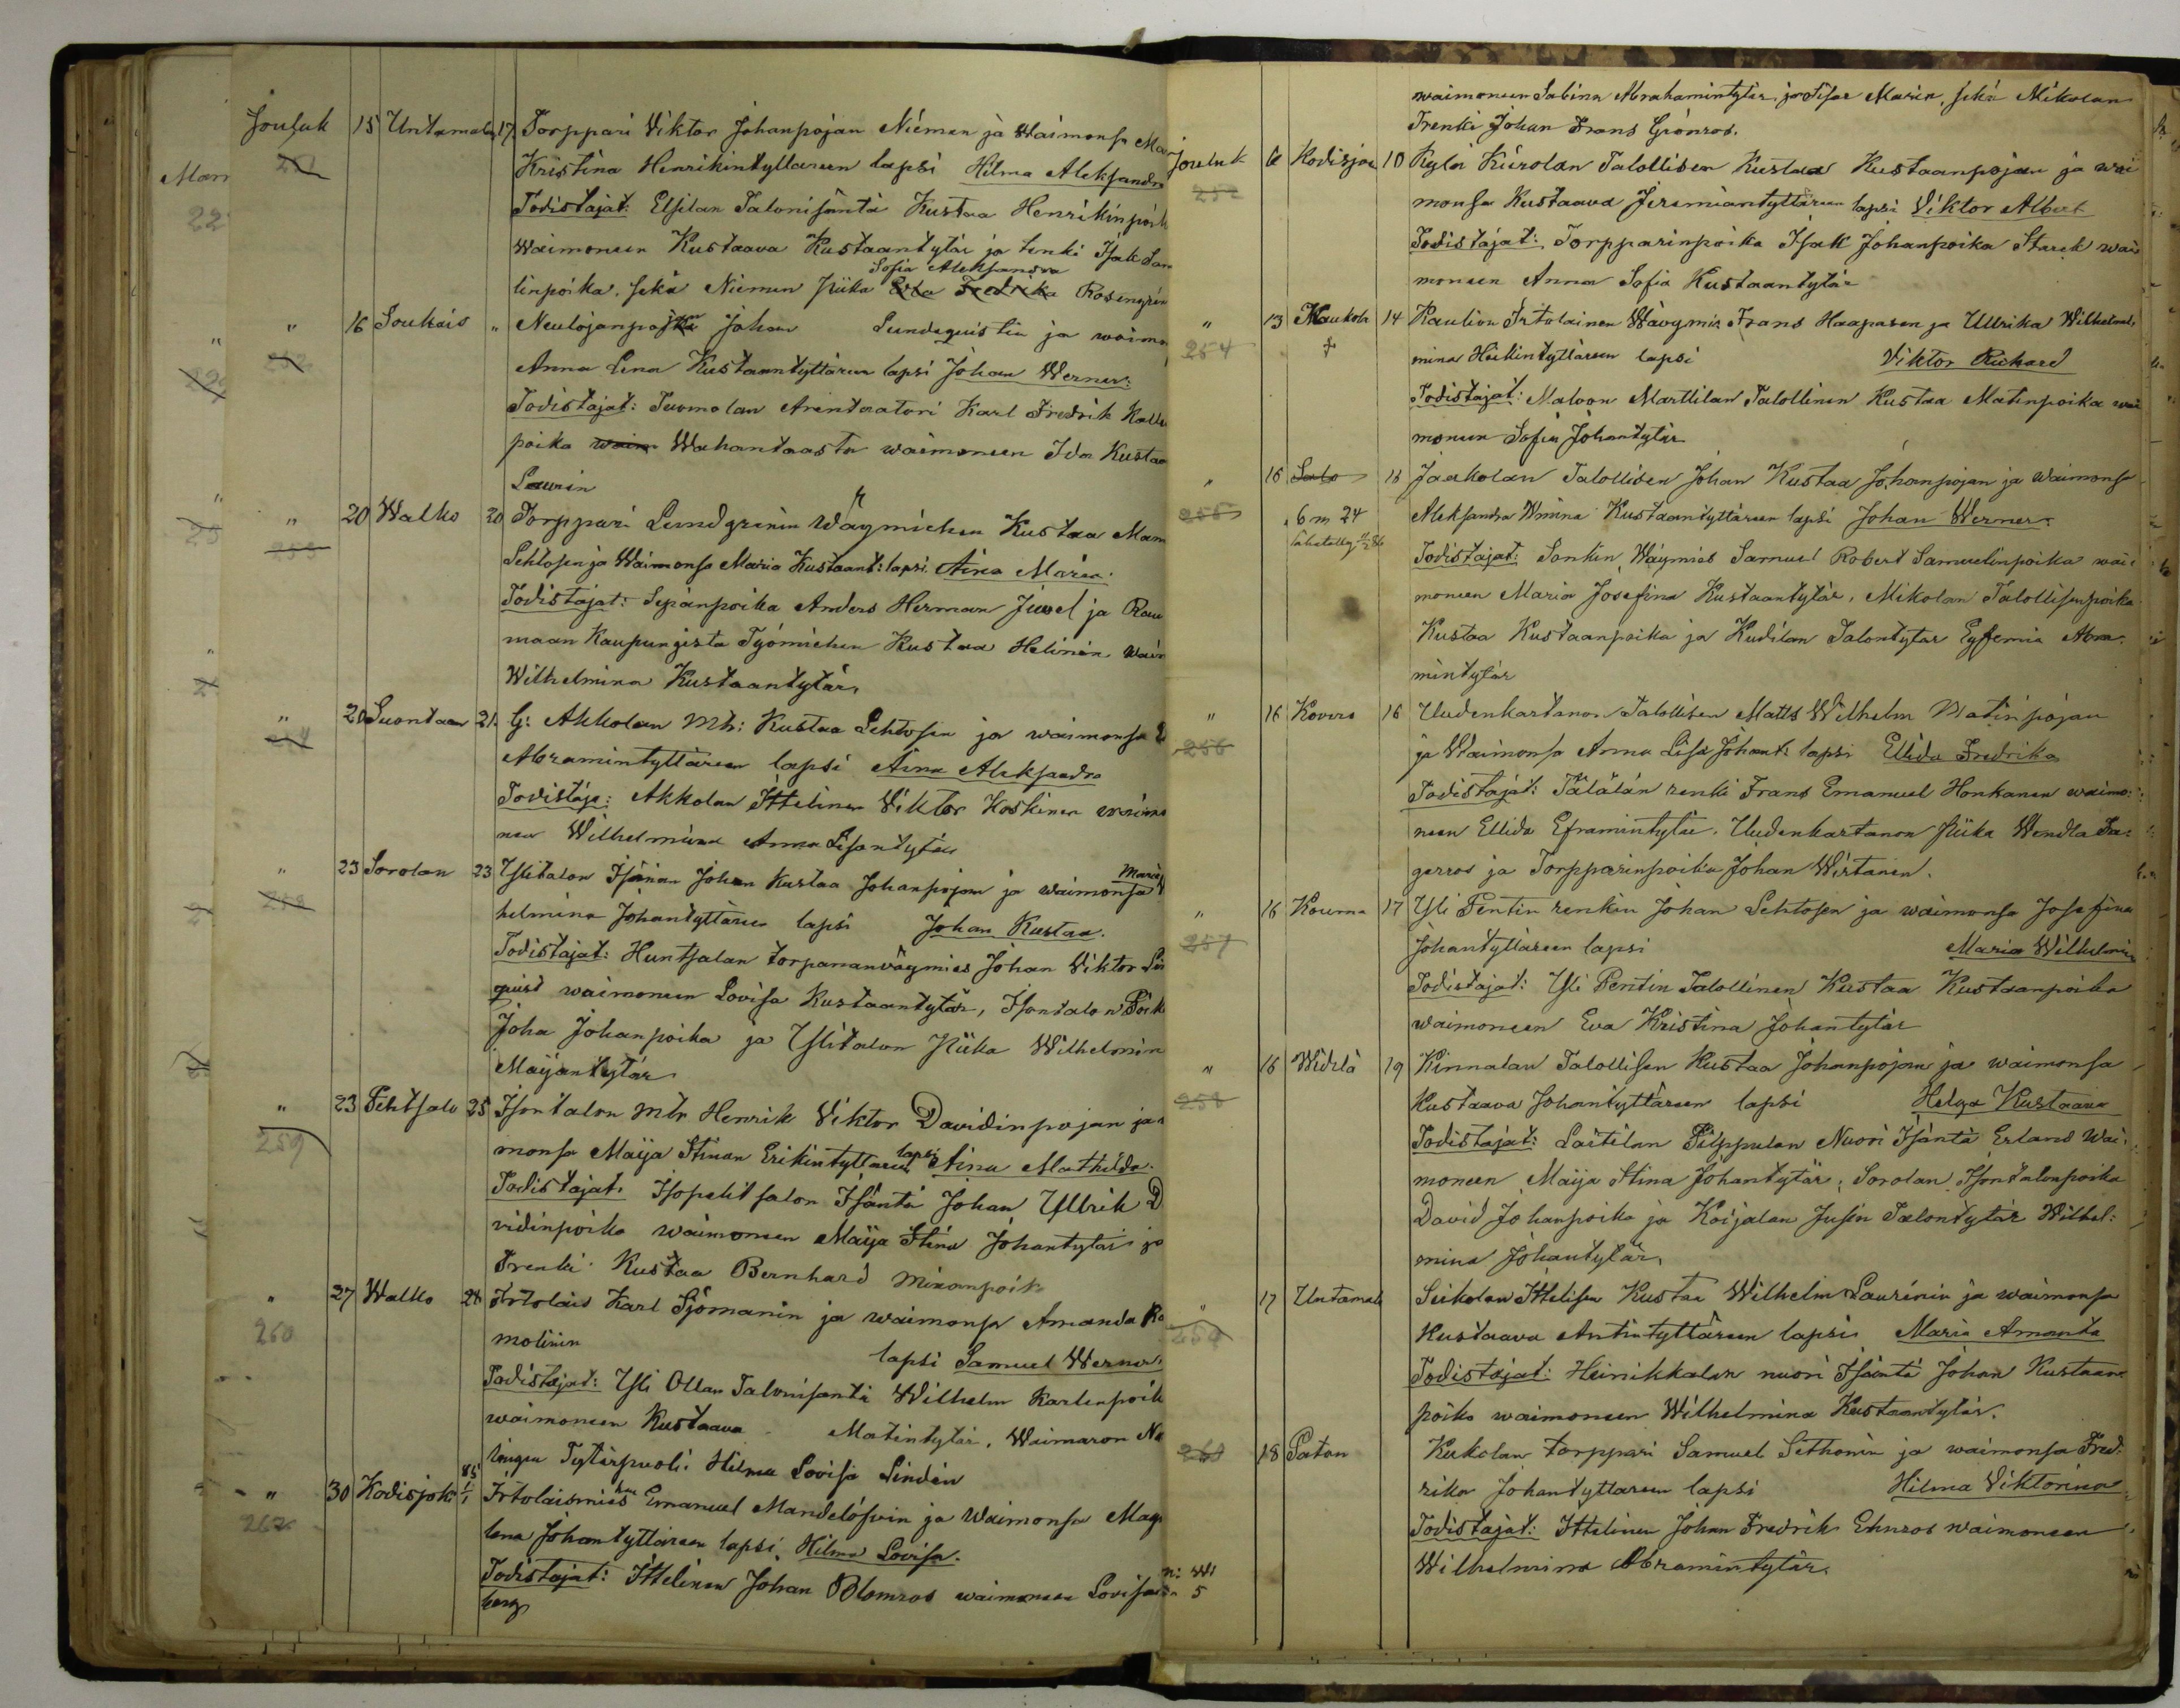 Jouluk 15 Untamala 17 Torppari Viktor Johanpojan Nieman ja Waimonsa Ma
Kristina Henrikintyttareen lapsi Hilma Aleksandra
Todistajat: Elsilan Talonisäntä Kustaa Henrikinpoik
Waimoneen Kustaava Kustaantytär ja renki Isak Sam
Sofia Aleksandra
linpoika, sekä Nieman Piika Eva Fredrika Rosengrén
" 16 Soukais " Neulojanpojan Johan Lundequistin ja waimo
Anna Lena Kustaantyttären lapsi Johan Werner:
Todistajat: Tuomolan Arentaatori Karl Fredrik Kalle
poika waim Wahantaasta waimoneen Ida Kustaa
Laurin
" 20 Walko 20 Torppari Lundgrenin Wäymiehen Kustaa Man
253
Lehtosen ja Waimonsa Maria Kustaant: lapsi Aina Maria.
Todistajat: Sepänpoika Anders Herman Juvel ja Rau
maan Kaupungista Työmiehen Kustaa Helinin waim
Wilhelmina Kustaantytär,
" 20 Suontaan 21. G: Akkolan Mtr: Kustaa Lehtosen ja waimonsa
Abramintyttäreen lapsi Aina Aleksandra
Todistaja: Akkolan Ittelinen Viktor Koskinen waimo
neen Wilhelmina Anna Lisantytär
" 23 Sorolan 23 Ylitalon Isänan Johan Kustaa Johanpojan ja waimonsa Maria
258
helmina Johantyttären lapsi Johan Kustaa.
Todistajat: Huntsalan torpananväymies Johan Viktor Lin
quist waimoneen Lovisa Kustaantytär, Isontalon Poik
Joha Johanpoika ja Ylitalon Piika Wilhelmin
Maijantytär
" 23 Pehtsalo 25 Isontalon Mtr Henrik Viktor Davidinpojan ja
259
monsa Maija Stinan Erikintyttären lapsi Aina Mathilda.
Todistajat. Isopehtsalon Isäntä Johan Ullrik D
vidinpoika waimoneen Maija Stina Johantytär ja
Trenki Kustaa Bernhard Mixanpoik
" 27 Walko 28 Irtolais Karl Sjömanin ja waimonsa Amanda Ro
260
molinin lapsi Samuel Werner.
Todistajat: Yli Ollan Talonisäntä Wilhelm Karlenpoik
waimoneen Kustaava Matintytär, Waimaron Na
lingen Tytärpuoli Hilma Lovisa Lindén
" 30 Kodisjoki 85 1/1 Irtolaismiehen Emanuel Mandelösin ja Waimonsa Mag
262
lena Johantyttäreen lapsi, Hilma Lovisa.
Todistajat: Ittelinen Johan Blomros waimoneen Lovisa
berg
waimoneen Sabina Abrahamintytär ja Sisar Maria, sekä Mikolan
Trenki Johan Frans Grönros.
Jouluk 6 Kodisjoe 10 Kylä Kiirolan Talollisen Kustaa Kustaanpojan ja wai
252
monsa Kustaava Jeremiantyttäreen lapsi Viktor Albert
Todistajat: Torpparinpoika Isak Johanpoika Starck wai
moneen Anna Sofia Kustaantytär
" 13 Kaukola 14 Raulion Irtolainen Wäymies Frans Haapasen ja Ullrika Wilhel
254
mina Heikintyttäreen lapsi Viktor Rickard
Todistajat: Maloon Marttilan Talollinen Kustaa Matinpoika wai
moneen Sofia Johantytär
" 15 Salo 18 Jaakolan Talollisen Johan Kustaa Johanpojan ja Waimonsa
255 6 m 24 Aleksandra Wiiina Kustaantyttäreen lapsi Johan Werner.
Todistajat: Sonkin Wäymies Samuel Robert Samuelinpoika wai
moneen Maria Josefina Kustaantytär, Mikolan Talollisenpoika
Kustaa Kustaanpoika ja Kudilan Talontytär Eyfemia Abra
mintytär
" 16 Kovero 16 Uudenkartanon Talollisen Matts Wilhelm Matinpojan
256
ja Waimonsa Anna Lisa Johant: lapsi Ellida Fredrika
Todistajat: Tälälän renki Frans Emanuel Honkanen waimo:
neen Ellida Eframintytär, Uudenkartanon Piika Wendla Sa:
garros ja Torpparinpoika Johan Wirtanen.
" 16 Kouma 17 Yli Pentin renkin Johan Lehtosen ja waimonsa Josefina
257
Johantyttäreen lapsi Maria Wilhelmin
Todistajat: Yli Pentin Talollinen Kustaa Kustaanpoika
waimoneen Eva Kristina Johantytär
" 16 Widilä 19 Kinnalan Talollisen Kustaa Johanpojan ja waimonsa
258
Kustaava Johantyttäreen lapsi Helga Kustaava
Todistajat: Laitilan Pilppulan Nuori Isäntä Erland Wai:
moneen Maija Stina Johantytär, Sorolan Isontalonpoika
David Johanpoika ja Koijalan Jusin Talontytär Wilhel:
mina Johantytär,
" 17 Untamala Seikolan Ittelisen Kustaa Wilhelm Laurénin ja waimonsa
Kustaava Antintyttäreen lapsi Maria Amanta
Todistajat: Heinikkalan nuori Isäntä Johan Kustaan
poika waimoneen Wilhelmina Kustaantytär.
18 Paton Kukolan torppari Samuel Sethonin ja waimonsa Fred:
rika Johantyttareen lapsi Hilma Viktorina
Todistajat: Ittelinen Johan Fredrik Ehnros waimoneen
Wilhelmina Abramintytär.